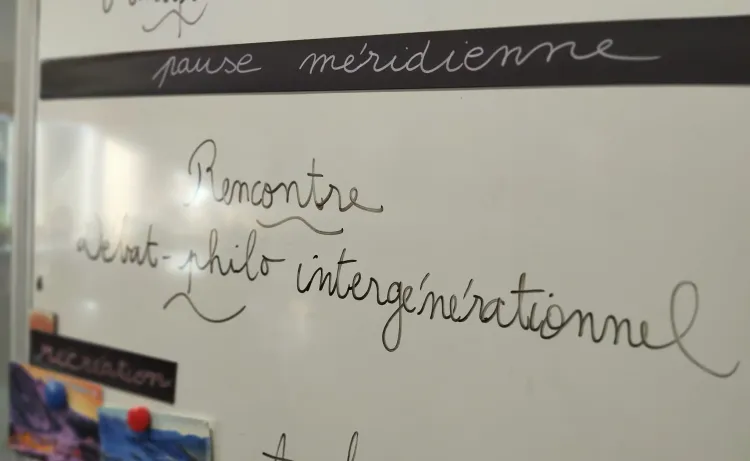 pause méridienne
Rencontre
debat-philo intergénérationnel
recreation